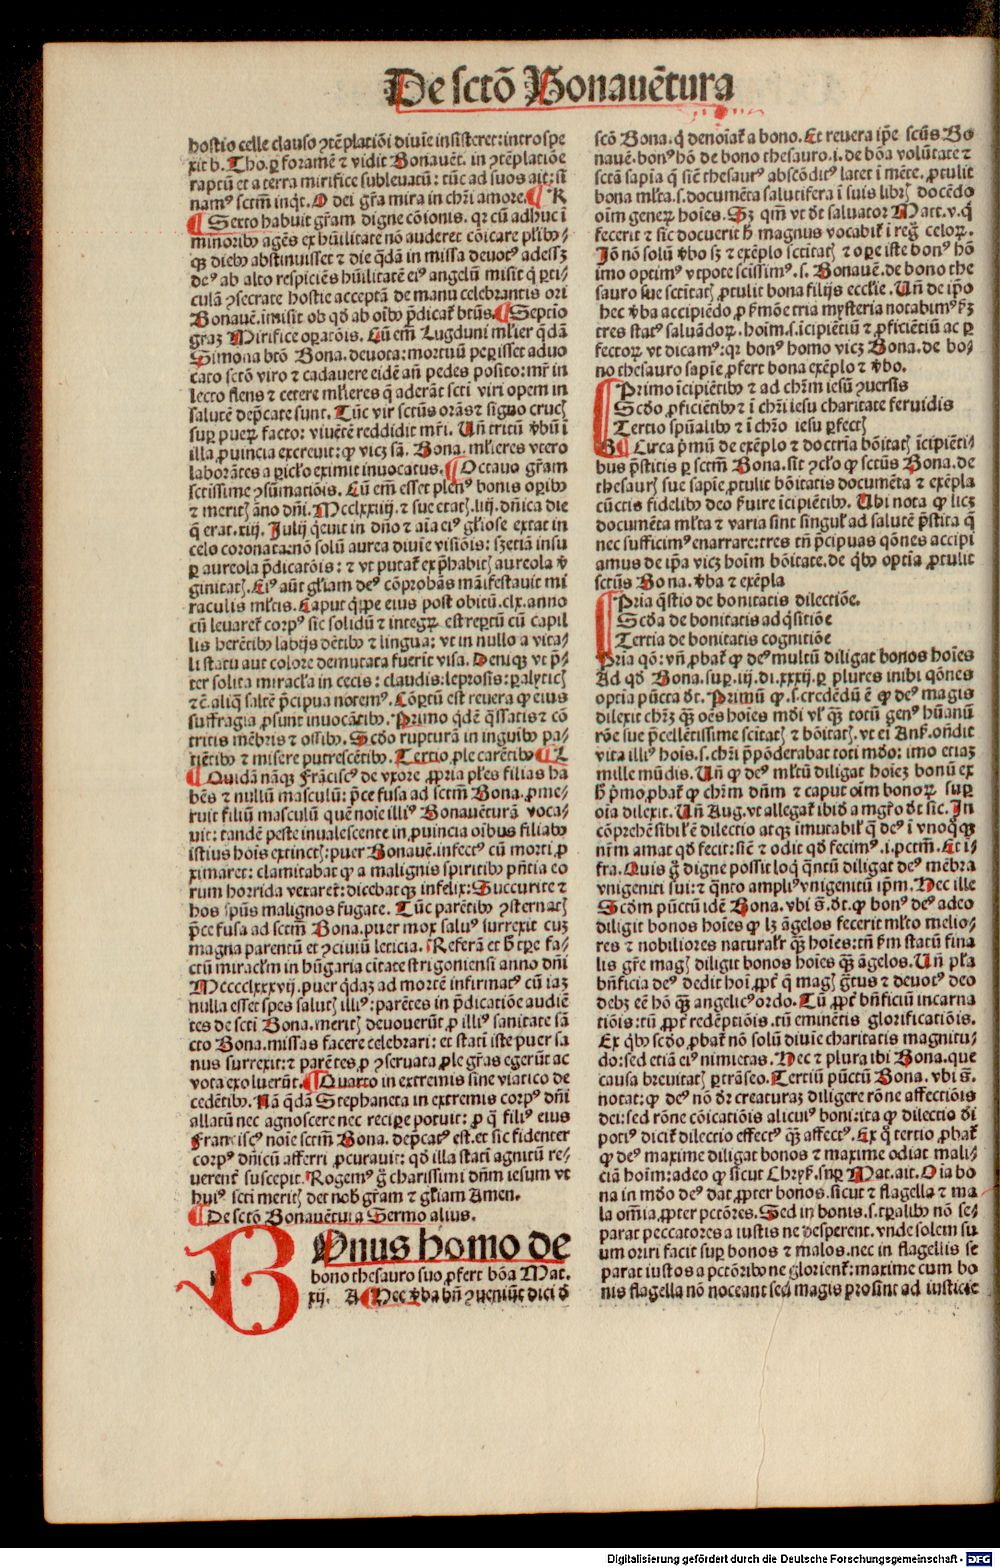 De sctō Bonauētura
hostio celle clauso ꝯtēplatiōi diuie insisteret: introspe
xit b. Tho. ꝑ foramē ⁊ vidit Bonauēt. in ꝯtēplatiōe
raptū et a terra mirifice subleuatū: tūc ad suos ait: si
namꝰ sctm̄ inqͥt. O dei gr̄a mira in chr̄i amore. ¶ K
¶ Sexto habuit gr̄am digne cōionis. qr cū adhuc ī
minoribꝫ agēs ex hūilitate nō auderet cōicare pl'ibꝫ
qꝫ diebꝫ abstinuisset ⁊ die qͣdā in missa deuotꝰ adessꝫ
deꝰ ab alto respiciēs hūilitatē eiꝰ angelū misit q̄ ꝑti-
culā ꝯsecrate hostie acceptā de manu celebrantis ori
Bonauē. imisit ob qd̄ ab oībꝫ p̄dicat̄ btūs. ¶ Septio
graꝫ Mirifice oꝑatōis. Cū em̄ Lugduni ml'ier qͣdā
Simona btō Bona. deuota: mortuū peꝑisset aduo
cato sctō viro ⁊ cadauere eidē añ pedes posito: mr̄ in
lecto flens ⁊ cetere ml'ieres q̄ aderāt scti viri opem in
salutē dep̄cate sunt. Tūc vir sctūs orās ⁊ signo crucꝭ
suꝑ pueꝝ facto: viuētē reddidit mr̄i. Uñ tritū ꝟbū ī
illa ꝓuincia excreuit: ꝙ vicꝫ sā. Bona. ml'ieres vtero
laborātes a ꝑicl'o eximit inuocatus. ¶ Octauo gr̄am
sctissime ꝯsūmatiōis. Cū em̄ esset plenꝰ bonis oꝑibꝫ
⁊ meritꝭ āno dn̄i. Mcclxxiiij. ⁊ sue etatꝭ. liij. dn̄ica die
q̄ erat. xiij. Julij qͥeuit in dn̄o ⁊ aīa eiꝰ gl'iose extat in
celo coronata: nō solū aurea diuie visiōis: sꝫ etiā insu
ꝑ aureola p̄dicatōis: ⁊ vt putat̄ ex p̄habitꝭ aureola ꝟ
ginitatꝭ. Eiꝰ aūt gl'iam deꝰ cōprobās māifestauit mi
raculis ml'tis. Caput qͥpe eius post obitū. clx. anno
cū leuaret̄ corpꝰ sic solidū ⁊ integꝝ est reꝑtū cū capil
lis herētibꝫ labijs dētibꝫ ⁊ lingua: vt in nullo a vita-
li statu aut colore demutata fuerit visa. Deniqꝫ vt p̄-
ter solita miracl'a in cecis: claudis: leprosis: ꝑalyticꝭ
⁊ē. aliqͣ saltē p̄cipua notemꝰ. Cōꝑtū est reuera ꝙ eius
suffragia ꝓsunt inuocātibꝫ. Primo qͥdē qͣssatis ⁊ cō
tritis mēbris ⁊ ossibꝫ. Scdo rupturā in inguibꝫ pa-
tiētibꝫ ⁊ misere putrescētibꝫ. Tertio ꝓle carētibꝫ ¶ L
¶ Quidā nāqꝫ Frāciscꝰ de vxore ꝓpria pl'es filias ha
bēs ⁊ nullū masculū: p̄ce fusa ad sctm̄ Bona. ꝓme-
ruit filiū masculū quē noie illiꝰ Bonauēturā voca-
uit: tandē peste inualescente in ꝓuincia oibus filiabꝫ
istius hois extinctꝭ: puer Bonauē. infectꝰ cū morti ꝓ
ximaret: clamitabat ꝙ a malignis spiritibꝫ pn̄tia eo
rum horrida vexaret̄: dicebatqꝫ infelix: Succurite ⁊
hos spūs malignos fugate. Tūc parētibꝫ ꝯsternatꝭ
p̄ce fusa ad sctm̄ Bona. puer mox saluꝰ surrexit cuꝫ
magna parentū et ꝯciuiū leticia. Referā et h̄ tꝑe fa-
ctū miracl'm in hūgaria ciuitate strigoniensi anno dn̄i
Mccccclxxxvij. puer qͥdaꝫ ad mortē infirmatꝰ cū iaꝫ
nulla esset spes salutꝭ illiꝰ: parētes in p̄dicatiōe audiē
tes de scti Bona. meritꝭ deuouerūt ꝓ illiꝰ sanitate sā
cto Bona. missas facere celebrari: et statī iste puer sa
nus surrexit: ⁊ parētes ꝓ ꝯseruata ꝓle gr̄as egerūt ac
vota exoluerūt. ¶ Quarto in extremis sine viatico de
cedētibꝫ. Nā qͣdā Stephaneta in extremis corpꝰ dn̄i
allatū nec agnoscere nec reciꝑe potuit: ꝓ qͣ filiꝰ eius
Franciscꝰ noie sctm̄ Bona. dep̄catꝰ est. et sic fidenter
corpꝰ dn̄icū afferri ꝓcurauit: qd̄ illa statī agnitū re-
uerent̄ suscepit. Rogemꝰ g̊ charissimi dn̄m iesum vt
huiꝰ scti meritꝭ det nob̄ gr̄am ⁊ gl'iam Amen.
¶ De sctō Bonauētura Sermo alius.
BOnus homo de
bono thesauro suo ꝓfert bōa Mat.
xij. A ¶ Hec ꝟba bn̄ ꝯueniūt dici ð
sctō Bona. qͥ denoīat̄ a bono. Et reuera ip̄e sctūs Bo
nauē. bonꝰ hō de bono thesauro. i. de bōa volūtate ⁊
sctā sapīa qͣ sic̄ thesaurꝰ abscōditꝰ latet ī mēte. ꝓtulit
bona ml'ta. s. documēta salutifera ī suis librꝭ docēdo
oīm geneꝝ hoīes. Sꝫ qm̄ vt d̄t saluator Mat. v. qͥ
fecerit ⁊ sic docuerit h̄ magnus vocabit̄ ī regͦ celoꝝ.
Jō nō solū ꝟbo sꝫ ⁊ exēplo sctitatꝭ ⁊ oꝑe iste bonꝰ hō
imo optimꝰ vtpote sctissimꝰ. s. Bonauē. de bono the
sauro sue sctitatꝭ ꝓtulit bona filijs eccl'ie. Uñ de ip̄o
hec ꝟba accipiēdo ꝓ ẜmōe tria mysteria notabimꝰ ẜꝫ
tres statꝰ saluādoꝝ. hoīm. s. īcipiētiū ⁊ ꝓficiētiū ac ꝑ
fectoꝝ vt dicamꝰ: qr bonꝰ homo vicꝫ Bona. de bo-
no thesauro sapie ꝓfert bona exēplo ⁊ ꝟbo.
Primo īcipiētibꝫ ⁊ ad chr̄m iesū ꝯuersis
Scdo ꝓficiētibꝫ ⁊ ī chr̄i iesu charitate feruidis
Tertio spūalibꝫ ⁊ ī chr̄o iesu ꝑfectꝭ
B ¶ Circa pͥmū de exēplo ⁊ doctrīa bōitatꝭ īcipiēti-
bus p̄stitis ꝑ sctm̄ Bona. sit ꝯcl'o ꝙ sctūs Bona. de
thesaurꝭ sue sapie ꝓtulit bōitatis documēta ⁊ exēpla
cūctis fidelibꝫ deo ẜuire īcipiētibꝫ. Ubi nota ꝙ licꝫ
documēta ml'ta ⁊ varia sint singul' ad salutē p̄stita qͣ
nec sufficimꝰ enarrare: tres tn̄ p̄cipuas qōnes accipi
amus de ip̄a vicꝫ hoīm bōitate. de qͥbꝫ optīa ꝓtulit
sctūs Bona. ꝟba ⁊ exēpla
Pria qͥstio de bonitatis dilectiōe.
Scda de bonitatis adqͥsitiōe
Tertia de bonitatis cognitiōe
Pria qō: vñ ꝓbat̄ ꝙ deꝰ multū diligat bonos hoīes
Ad qd̄ Bona. suꝑ. iij. di. xxxij. ꝑ plures inibi qōnes
optīa pūcta d̄t. Primū ꝙ. s. credēdū ē ꝙ deꝰ magis
dilexit chr̄ꝫ qͣꝫ oēs hoīes mōi vl' qͣꝫ totū genꝰ hūanū
rōe sue p̄cellētissime scitatꝭ ⁊ bōitatꝭ. vt ei Ans̄. on̄dit
vita illiꝰ hoīs. s. chr̄i p̄pōderabat toti mōo: imo etiaꝫ
mille mūdis. Uñ ꝙ deꝰ ml'tū diligat hoīeꝫ bonū ex
h̄ pͥmo ꝓbat̄ ꝙ chr̄m dn̄m ⁊ caput oīm bonoꝝ suꝑ
oīa dilexit. Uñ Aug. vt allegat̄ ibid̄ a mgr̄o d̄t sic. In
cōprehēsibil' ē dilectio atqꝫ īmutabil' qͣ deꝰ ī vnoqͦqꝫ
nr̄m amat qd̄ fecit: sic̄ ⁊ odit qd̄ fecimꝰ. i. pctm̄. Et ī-
fra. Quis g̊ digne possit loqͥ qͣntū diligat deꝰ mēbra
vnigeniti sui: ⁊ qͣnto ampliꝰ vnigenitū ip̄m. Hec ille
Scdm pūctū idē Bona. vbi s̄. d̄t. ꝙ bonꝰ deꝰ adeo
diligit bonos hoīes ꝙ lꝫ āgelos fecerit ml'to melio-
res ⁊ nobiliores naturalr̄ qͣꝫ hoīes: tn̄ ẜm statū fina
lis gr̄e magꝭ diligit bonos hoīes qͣꝫ āgelos. Uñ pl'a
bn̄ficia deꝰ dedit hoī ꝓpt̄ qͣ magꝭ gͣtus ⁊ deuotꝰ deo
debꝫ eē hō qͣꝫ angelicꝰ ordo. Tū ꝓpt̄ bn̄ficiū incarna
tiōis: tū ꝓpt̄ redēptiōis. tū eminētis glorificatiōis.
Ex qͥbꝫ scdo ꝓbat̄ nō solū diuie charitatis magnitu-
do: sed etiā eiꝰ nimietas. Hec ⁊ plura ibi Bona. que
causa breuitatꝭ ꝑtrāseo. Tertiū pūctū Bona. vbi s̄.
notat: ꝙ deꝰ nō dr̄ creaturaꝫ diligere rōne affectiōis
dei: sed rōne cōicatiōis alicuiꝰ boni: ita ꝙ dilectio di
potiꝰ dicit̄ dilectio effectꝰ qͣꝫ affectꝰ. Ex qͦ tertio ꝓbat̄
ꝙ deꝰ maxime diligat bonos ⁊ maxime odiat mali-
ciā hoīm: adeo ꝙ sicut Chrys̄. suꝑ Mat. ait. Oīa bo
na in mōo deꝰ dat ꝓpter bonos. sicut ⁊ flagella ⁊ ma
la om̄ia ꝓpter pctōres. Sed in bonis. s. tꝑalibꝫ nō se-
parat peccatores a iustis ne desperent. vnde solem su
um oriri facit suꝑ bonos ⁊ malos. nec in flagellis se
parat iustos a pctōribꝫ ne glorient̄: maxime cum bo
nis flagella nō noceant sed magis prosint ad iusticie
Digitalisierung gefördert durch die Deutsche Forschungsgemeinschaft - DFG